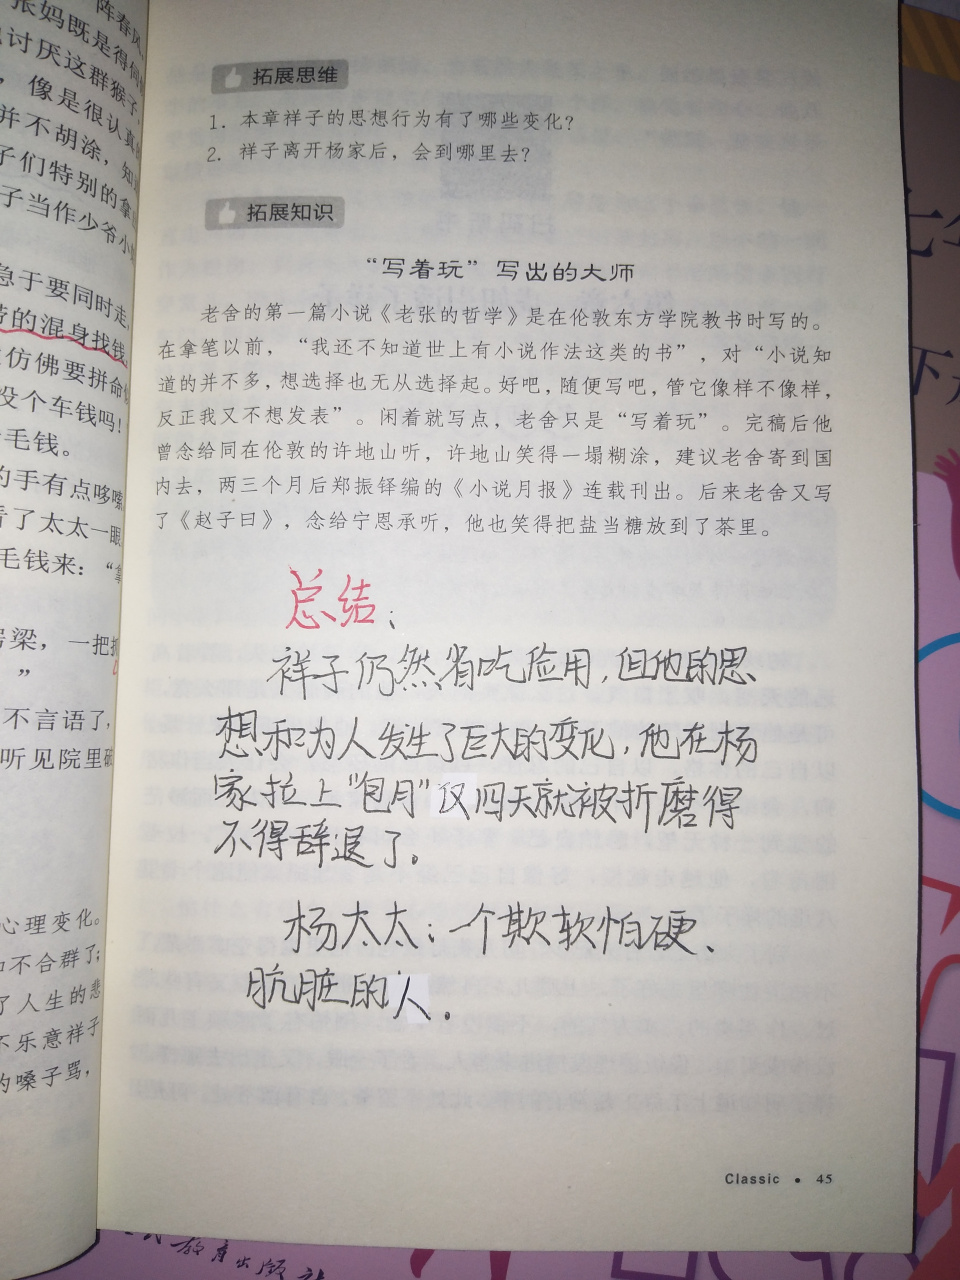 阵春风,
张妈既是得伺
讨厌这群猴子,
,像是很认真
并不胡涂,知
子们特别的拿
子当作少爷小
急于要同时走,
的混身找钱,
仿佛要拼命
没个车钱吗!
毛钱。
的手有点哆嗦
看了太太一眼
毛钱来:“拿
房梁,一把
”
不言语了,
听见院里破
心理变化。
和不合群了;
了人生的悲
不乐意祥子
的嗓子骂,
拓展思维
1. 本章祥子的思想行为有了哪些变化?
2. 祥子离开杨家后,会到哪里去?
拓展知识
“写着玩”写出的大师
老舍的第一篇小说《老张的哲学》是在伦敦东方学院教书时写的。
在拿笔以前,“我还不知道世上有小说作法这类的书”,对“小说知
道的并不多,想选择也无从选择起。好吧,随便写吧,管它像样不像样,
反正我又不想发表”。闲着就写点,老舍只是“写着玩”。完稿后他
曾念给同在伦敦的许地山听,许地山笑得一塌糊涂,建议老舍寄到国
内去,两三个月后郑振铎编的《小说月报》连载刊出。后来老舍又写
了《赵子曰》,念给宁恩承听,他也笑得把盐当糖放到了茶里。
总结:
祥子仍然省吃俭用,但他的思
想和为人发生了巨大的变化,他在杨
家拉上“包月”仅四天就被折磨得
不得辞退了。
杨太太:一个欺软怕硬、
肮脏的人.
Classic • 45
教育出版社